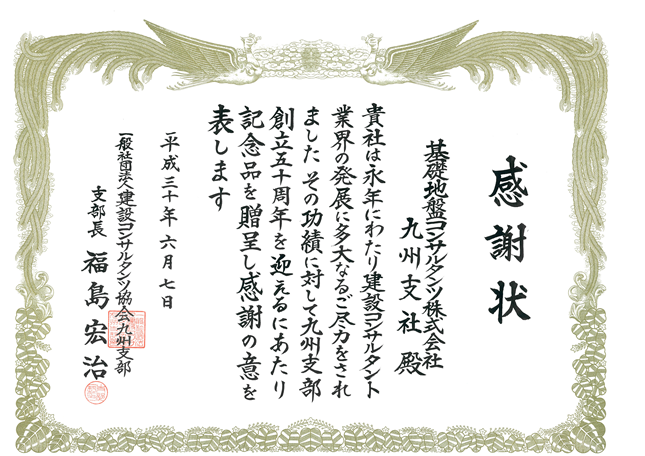 感謝状
基礎地盤コンサルタンツ株式会社
九州支社 殿
貴社は永年にわたり建設コンサルタント
業界の発展に多大なるご尽力をされ
ました その功績に対して九州支部
創立五十周年を迎えるにあたり
記念品を贈呈し感謝の意を
表します
平成三十年六月七日
一般社団法人建設コンサルタンツ協会九州支部
支部長 福島宏治